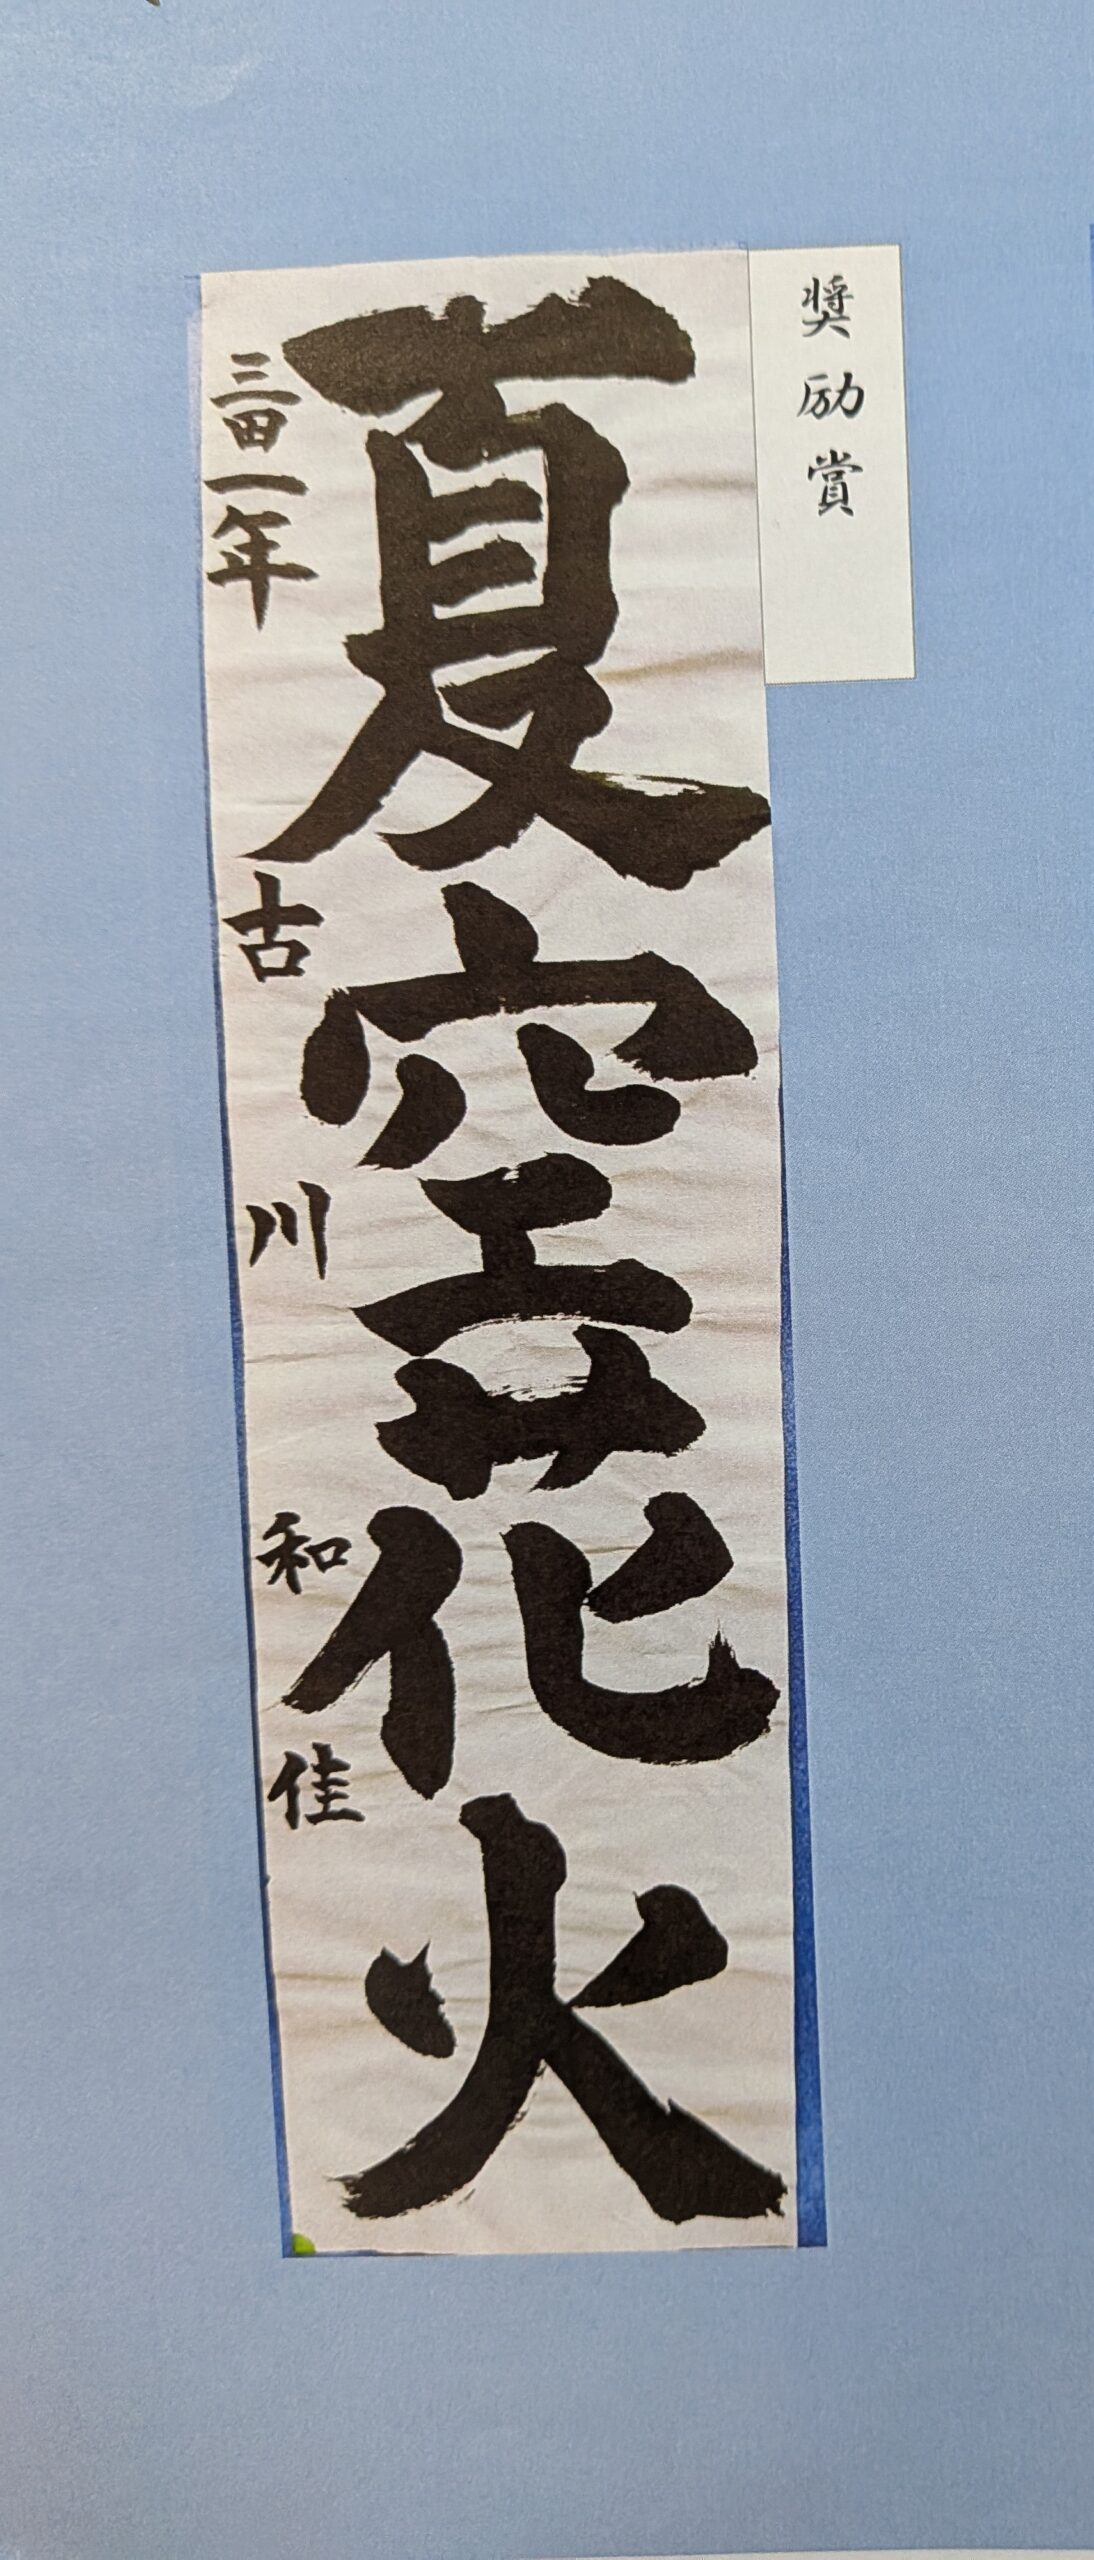 奨励賞
夏空花火
三田一年 古川和佳